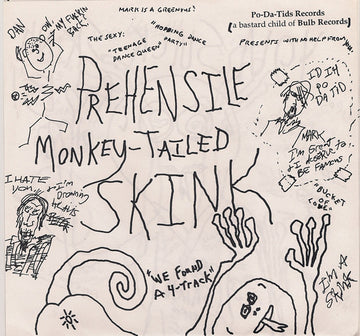 MARK IS A GREENIUS?
Po-Da-Tids Records
(a bastard child of Bulb Records)
PRESENTS WITH NO HELP FROM YOU.
DAN
OW, MY FUCKIN
BACK!
THE SEXY:
"TEENAGE
DANCE QUEEN"
"HOPPING DANCE
PARTY"
PREHENSILE
MONKEY-TAILED
SKINK
PO
DA TID
MARK
I'M GREAT
& I DESERVE TO
BE FAMOUS
"BUCKET
I HATE
YOU..
& I'M
"WE FOUND
A 4-TRACK"
I'M A
SKINK